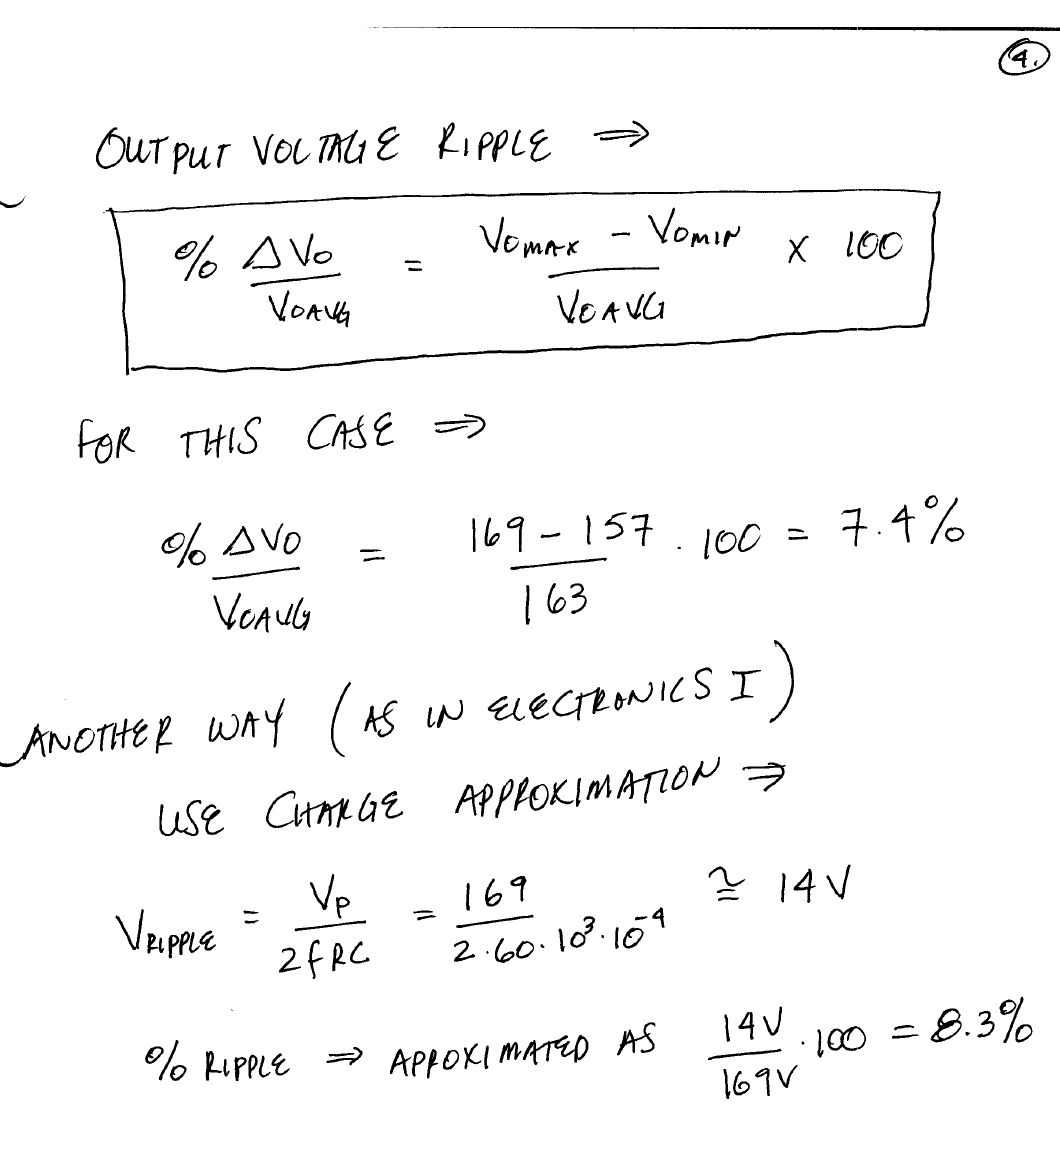 4.
OUTPUT VOLTAGE RIPPLE ⇒
% ΔVo / VOAVG = (VOMAX - VOMIN) / VOAVG X 100
FOR THIS CASE ⇒
% ΔVO / VOAVG = (169 - 157) / 163 . 100 = 7.4%
ANOTHER WAY (AS IN ELECTRONICS I)
USE CHARGE APPROXIMATION ⇒
VRIPPLE = Vp / 2fRC = 169 / 2·60·10³·10⁻⁴ ≅ 14V
% RIPPLE ⇒ APPROXIMATED AS 14V / 169V · 100 = 8.3%